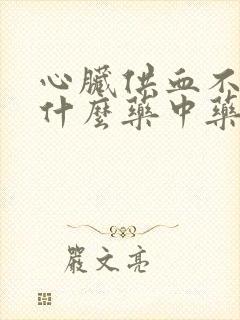 心臟供血不
什麼藥中藥
嚴文亮